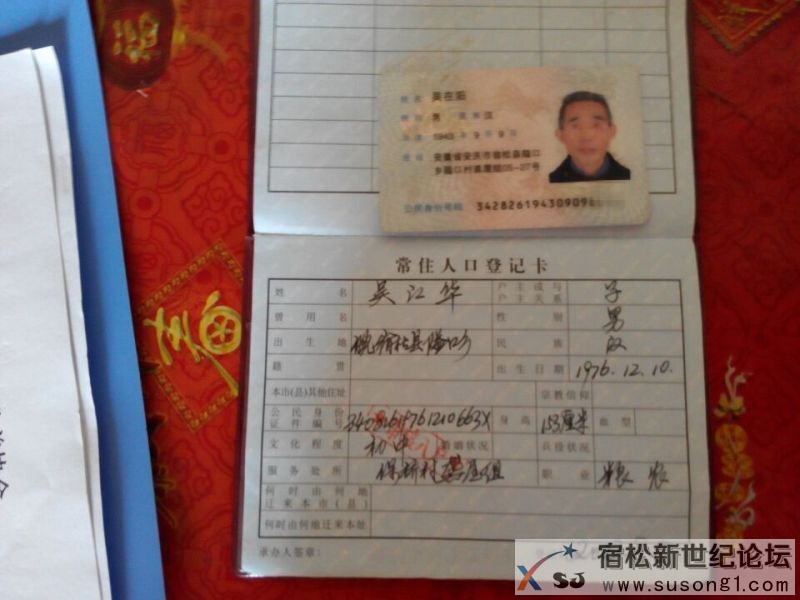 姓名 吴在
男 民族 汉
1943 年 9 月 9 日
住址 安徽省安庆市宿松县隘口
乡隘口村
公民身份号码 34282619430909
常住人口登记卡
姓名 吴江华 户主或与户主关系 子
曾用名 性别 男
出生地 宿松县隘口乡 民族 汉
籍贯 出生日期 1976.12.10.
本市(县)其他住址 宗教信仰
公民身份证件编号 身高 153厘米 血型
文化程度 初中 婚姻状况 兵役状况
服务处所 职业 粮农
何时由何地迁来本市(县)
何时由何地迁来本址
承办人签章:
宿松新世纪论坛
XSJ
www.susong1.com